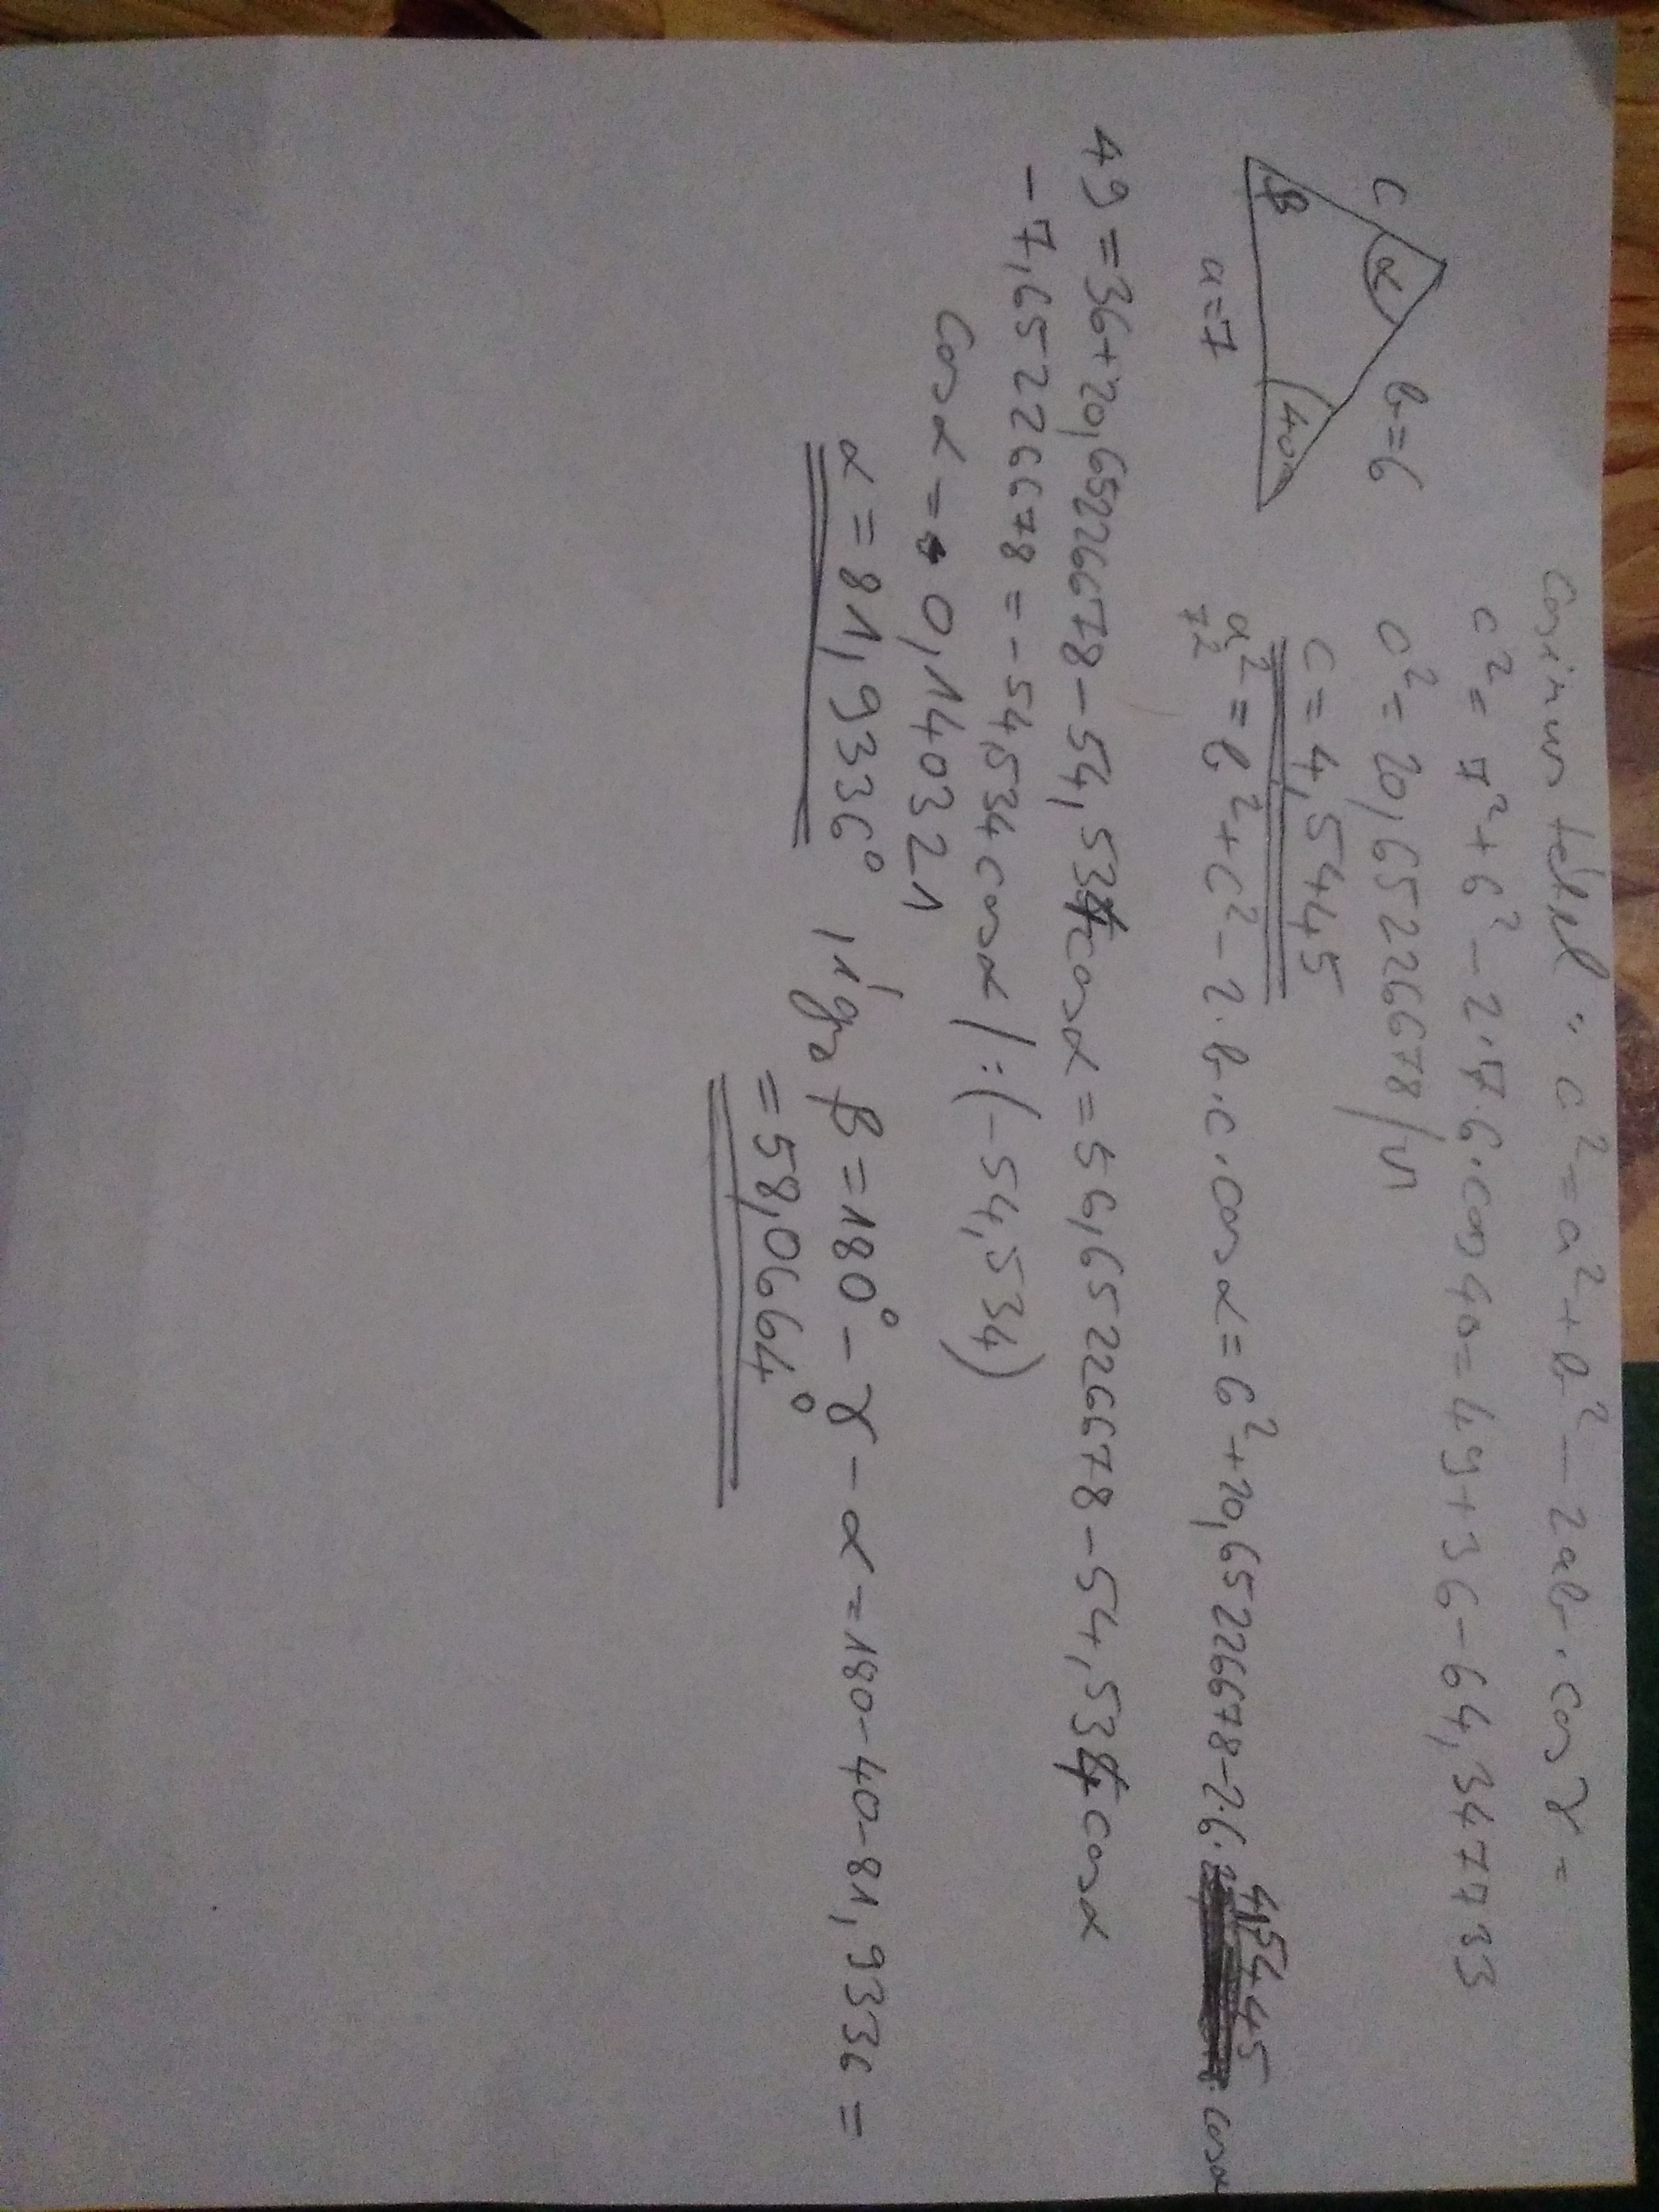 Cosinus tétel: c² = a² + b² − 2ab · cos γ =
c² = 7² + 6² − 2·7·6·cos 40 = 49 + 36 − 64,347733
c² = 20,65226678 /√
c = 4,5445
c
α
b=6
β
40°
a=7
a² = b² + c² − 2·b·c·cos α = 6² + 20,65226678 − 2·6· 4,5445 · cos α
7²
49 = 36 + 20,65226678 − 54,534 cos α = 56,65226678 − 54,534 cos α
−7,65226678 = −54,534 cos α / :(−54,534)
cos α = 0,140321
α = 81,9336° , így β = 180° − γ − α = 180 − 40 − 81,9336 =
= 58,0664°